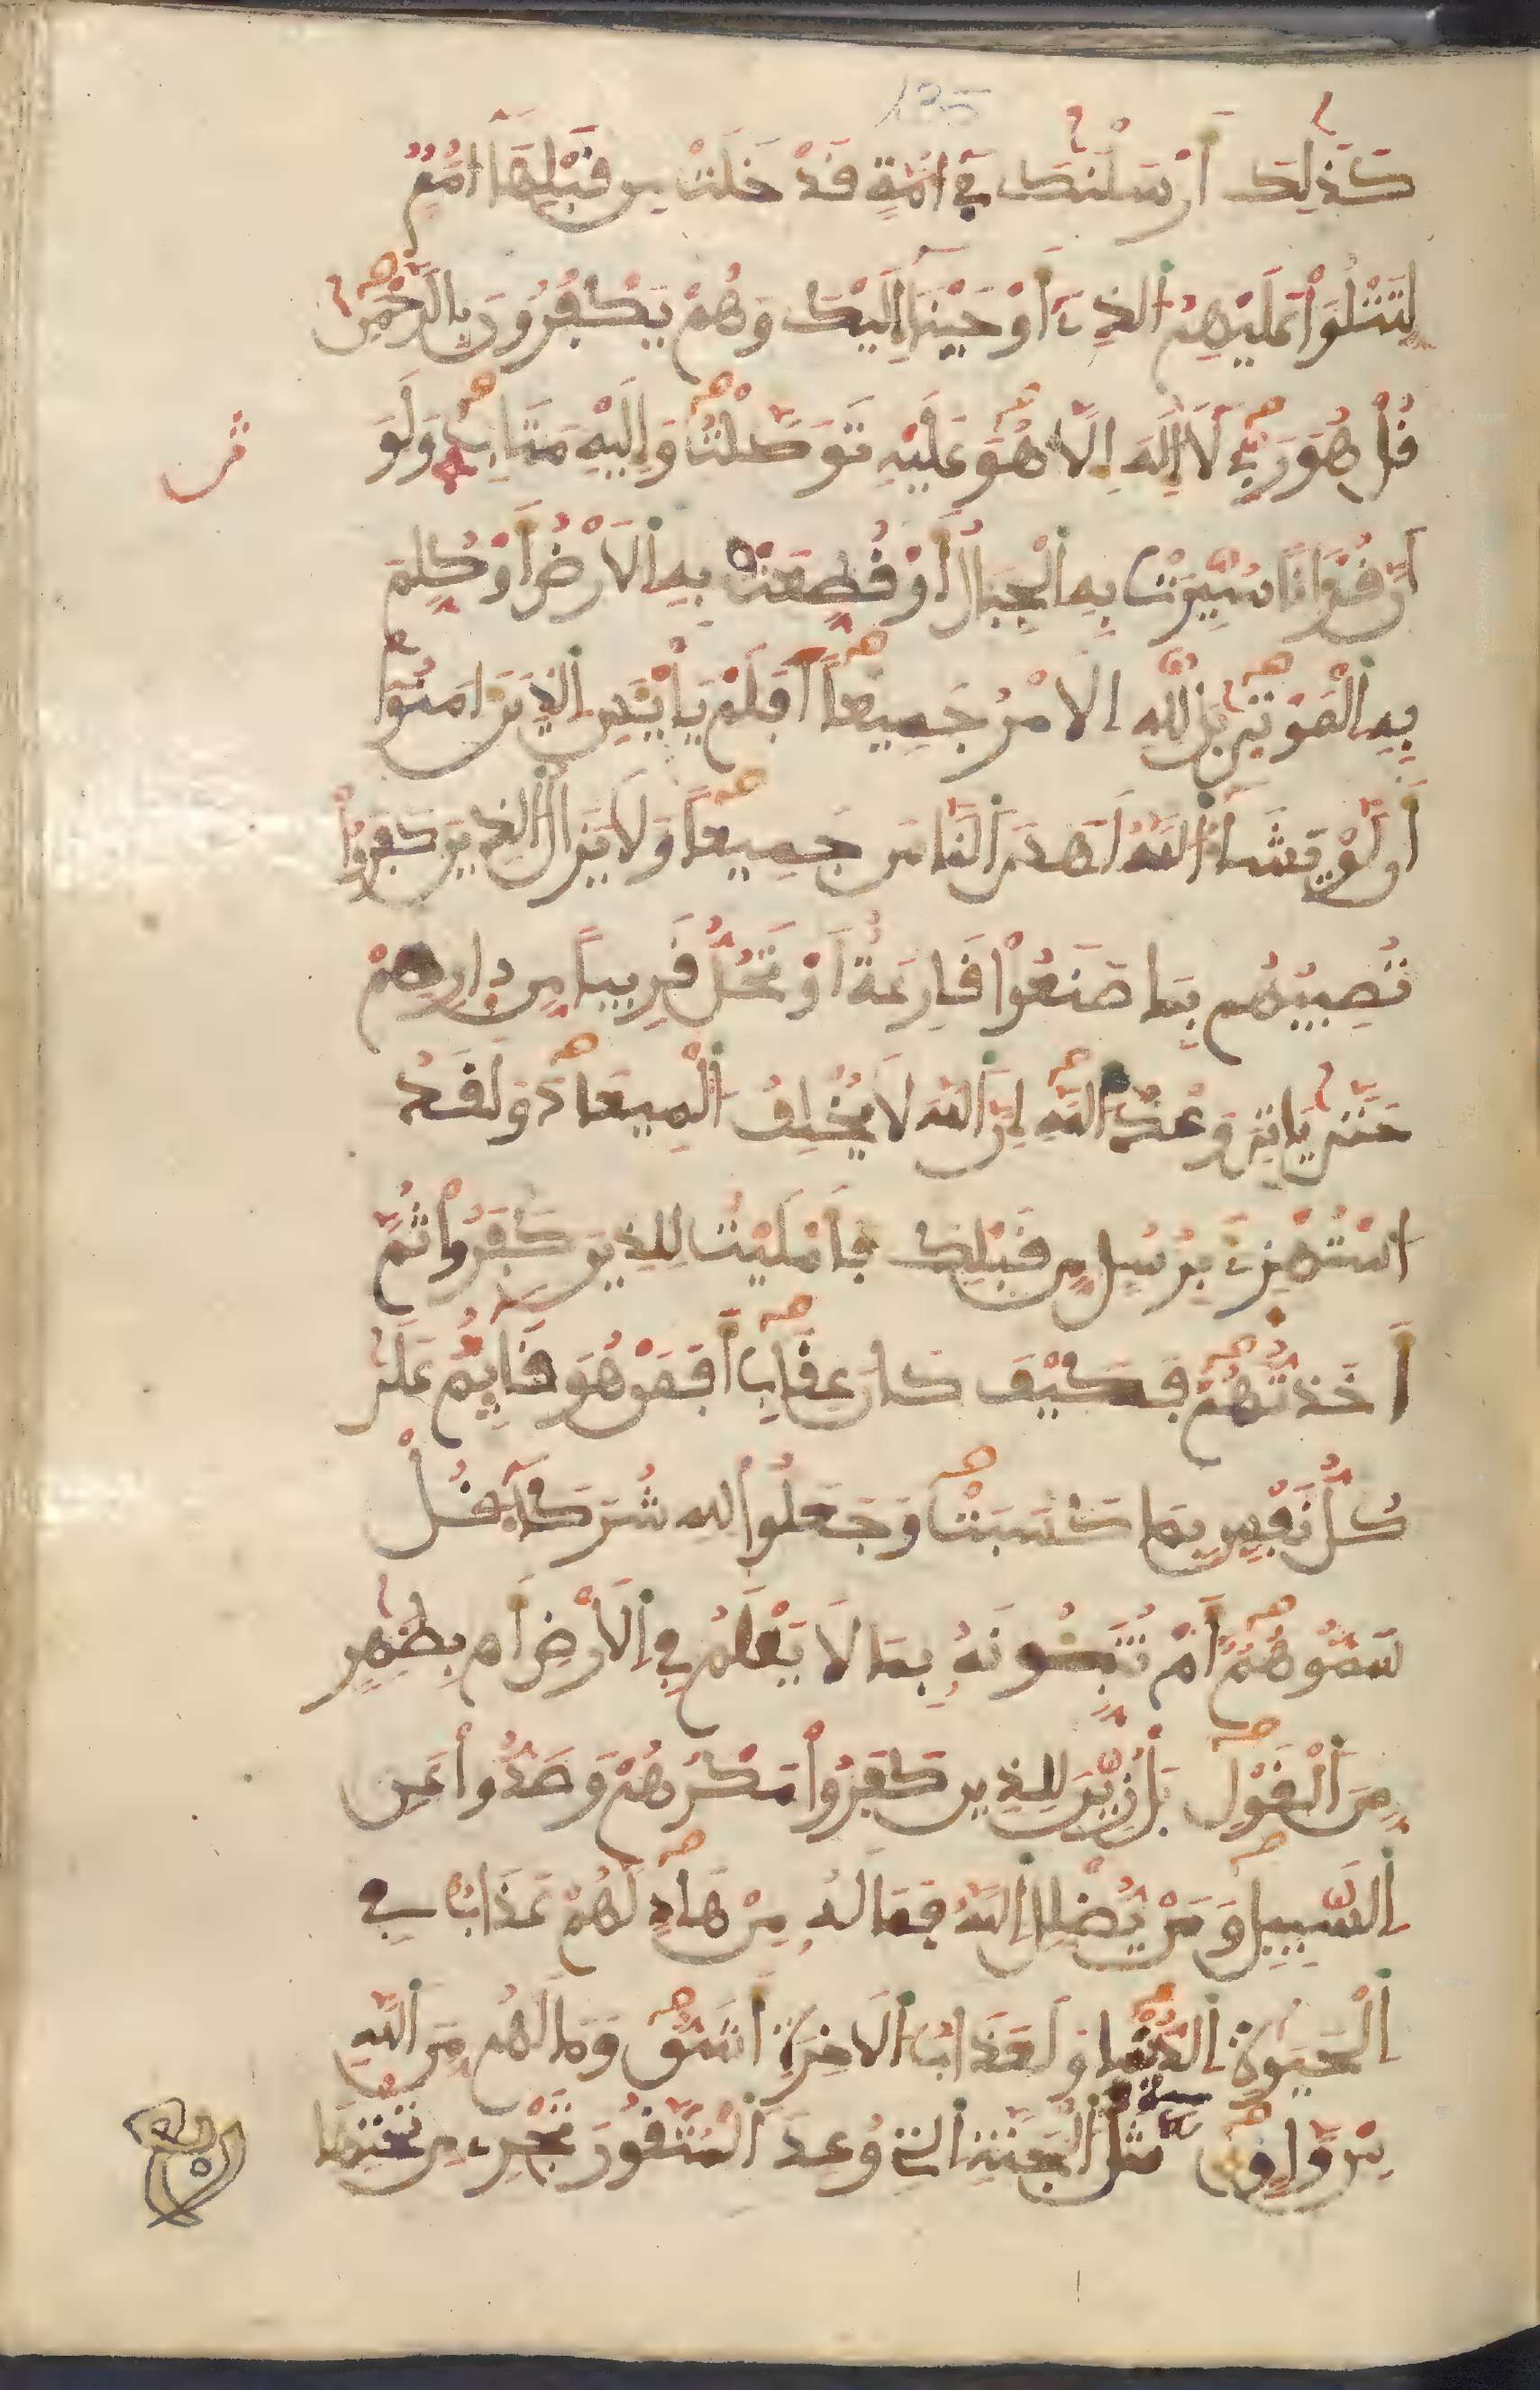 135
كَذَٰلِكَ أَرْسَلْنَٰكَ فِےٓ أُمَّةٍ قَدْ خَلَتْ مِن قَبْلِهَآ أُمَمٌ
لِّتَتْلُوَاْ عَلَيْهِمُ اُ۬لذِےٓ أَوْحَيْنَآ إِلَيْكَ وَهُمْ يَكْفُرُونَ بِالرَّحْمَٰنِ
قُلْ هُوَ رَبِّے لَآ إِلَٰهَ إِلَّا هُوَ عَلَيْهِ تَوَكَّلْتُ وَإِلَيْهِ مَتَابِ وَلَوَ
اَنَّ قُرْءَاناً سُيِّرَتْ بِهِ اِ۬لْجِبَالُ أَوْ قُطِّعَتْ بِهِ اِ۬لَارْضُ أَوْ كُلِّمَ
بِهِ اِ۬لْمَوْتَىٰ بَل لِّلهِ اِ۬لَامْرُ جَمِيعاً أَفَلَمْ يَاْيْـَٔسِ اِ۬لذِينَ ءَامَنُوٓاْ
أَن لَّوْ يَشَآءُ اُ۬للَّهُ لَهَدَى اَ۬لنَّاسَ جَمِيعاً وَلَا يَزَالُ اُ۬لذِينَ كَفَرُواْ
تُصِيبُهُم بِمَا صَنَعُواْ قَارِعَةٌ أَوْ تَحُلُّ قَرِيباً مِّن دِارِهِمْ
حَتَّىٰ يَاتِيَ وَعْدُ اُ۬للَّهِ إِنَّ اَ۬للَّهَ لَا يُخْلِفُ اُ۬لْمِيعَادَ وَلَقَدُ
اُ۟سْتُهْزِئَ بِرُسُلٍ مِّن قَبْلِكَ فَأَمْلَيْتُ لِلذِينَ كَفَرُواْ ثُمَّ
أَخَذتُّهُمْ فَكَيْفَ كَانَ عِقَابِ أَفَمَنْ هُوَ قَآئِمٌ عَلَىٰ
كُلِّ نَفْسٍ بِمَا كَسَبَتْ وَجَعَلُواْ لِلهِ شُرَكَآءَ قُلْ
سَمُّوهُمْ أَمْ تُنَبِّـُٔونَهُۥ بِمَا لَا يَعْلَمُ فِے اِ۬لَارْضِ أَم بِظَٰهِرٍ
مِّنَ اَ۬لْقَوْلِ بَلْ زُيِّنَ لِلذِينَ كَفَرُواْ مَكْرُهُمْ وَصَدُّواْ عَنِ
اِ۬لسَّبِيلِ وَمَنْ يُّضْلِلِ اِ۬للَّهُ فَمَا لَهُۥ مِنْ هَادٍ لَّهُمْ عَذَابٌ فِے
اِ۬لْحَيَوٰةِ اِ۬لدُّنْيَا وَلَعَذَابُ اُ۬لَاخِرَةِ أَشَقُّ وَمَا لَهُم مِّنَ اَ۬للَّهِ
مِنْ وَّاقٍ مَّثَلُ اُ۬لْجَنَّةِ اِ۬لتِے وُعِدَ اَ۬لْمُتَّقُونَ تَجْرِے مِن تَحْتِهَا
ربع